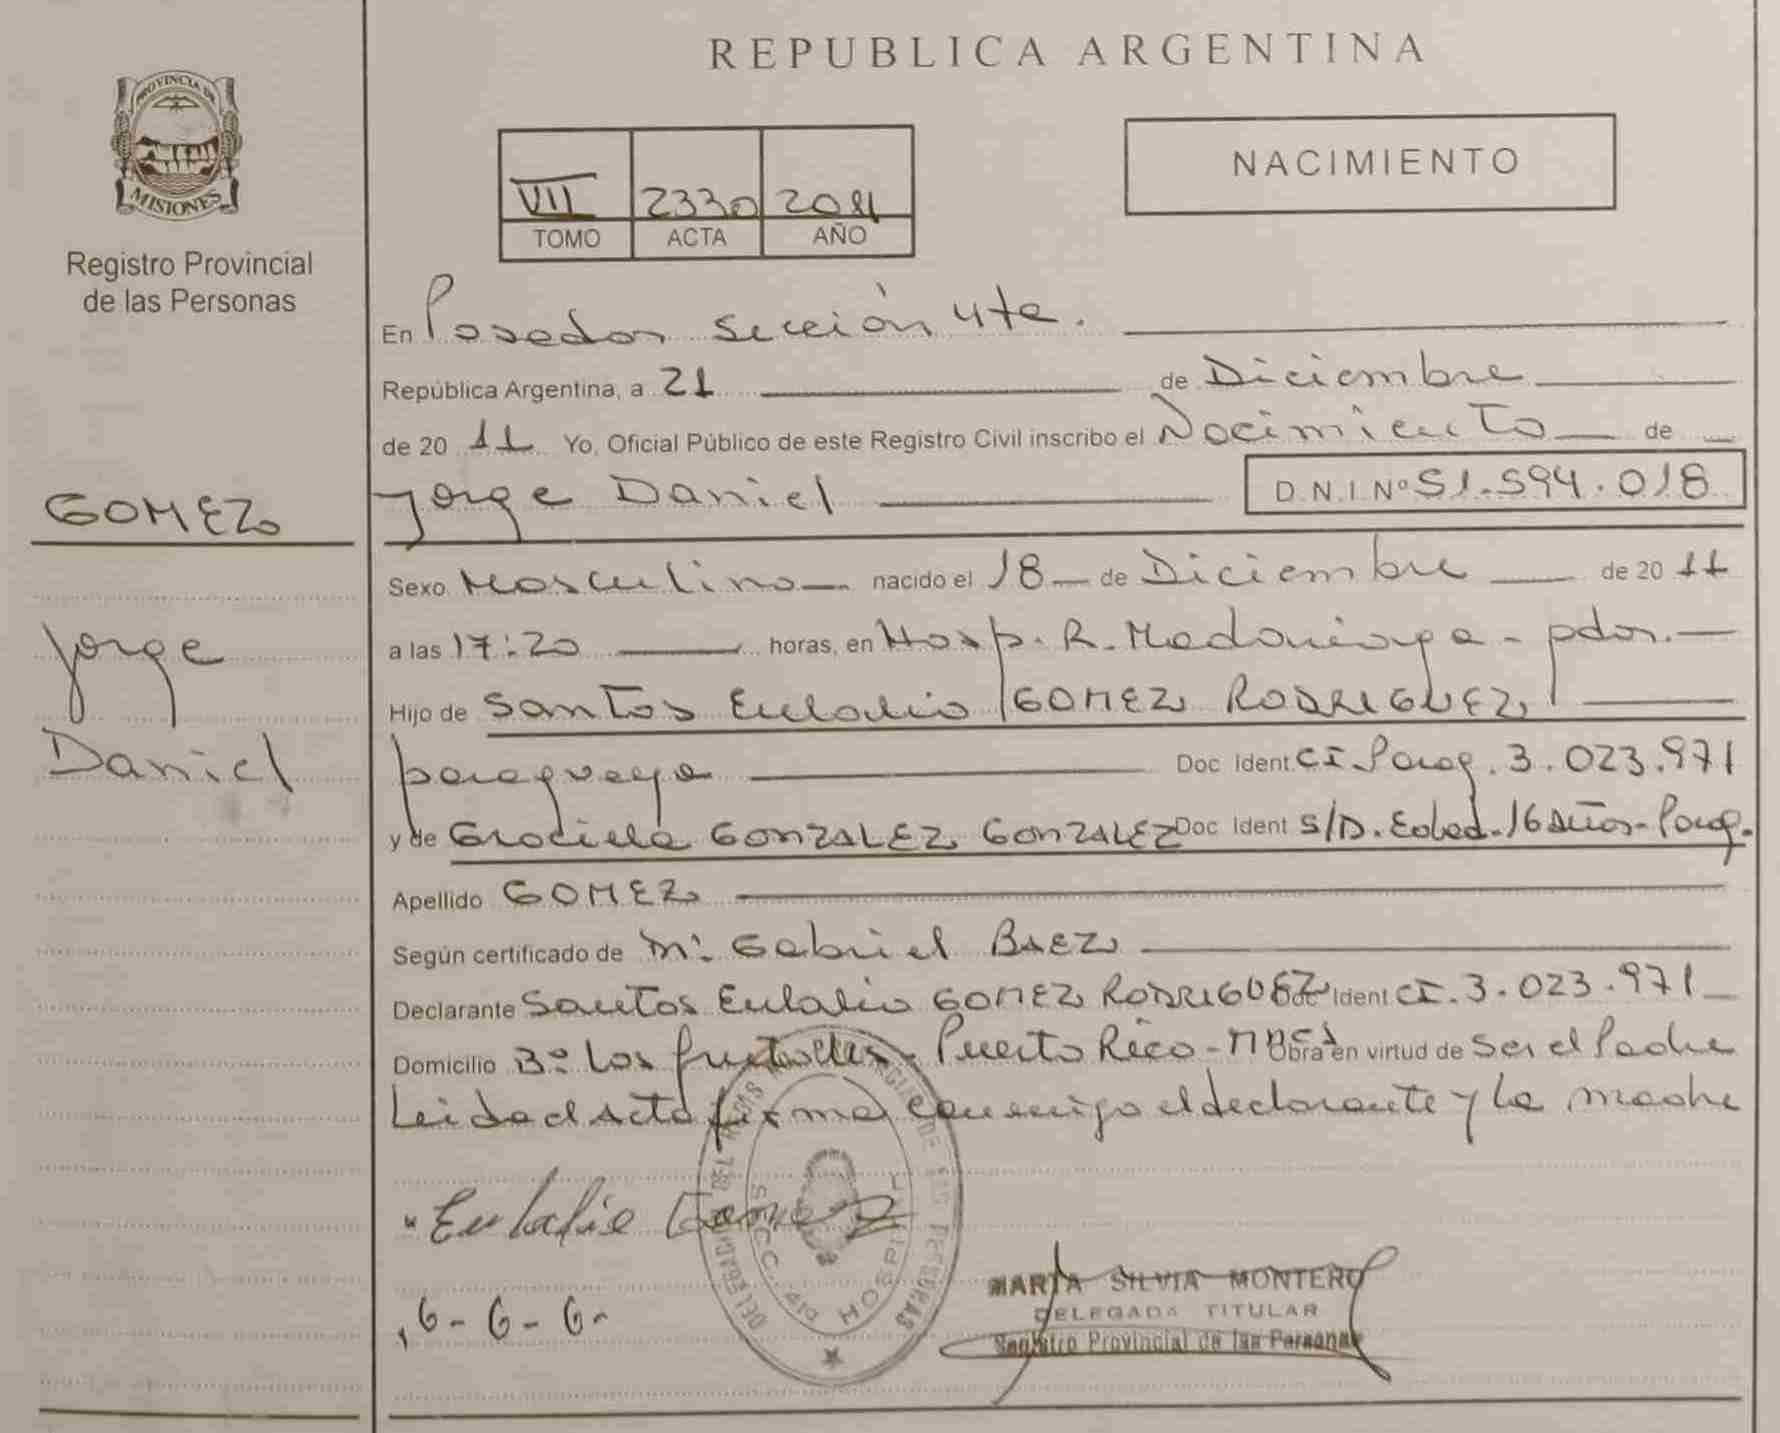 REPUBLICA ARGENTINA
PROVINCIA DE
MISIONES
Registro Provincial
de las Personas
NACIMIENTO
VII 2330 2011
TOMO ACTA AÑO
En Posadas sección 4ta.
República Argentina, a 21 de Diciembre
de 20 11 Yo, Oficial Público de este Registro Civil inscribo el Nacimiento de
GOMEZ
Jorge Daniel D.N.I Nº 51.594.018
Sexo Masculino nacido el 18 de Diciembre de 20 11
Jorge
a las 17:20 horas, en Hosp. R. Madariaga - pdas.
Hijo de Santos Eulalio GOMEZ RODRIGUEZ
Daniel
paraguayo Doc Ident. CI Parag. 3.023.971
y de Graciela GONZALEZ GONZALEZ Doc Ident S/D. Edad. 16 años - Parag.
Apellido GOMEZ
Según certificado de Mº Gabriel BAEZ
Declarante Santos Eulalio GOMEZ RODRIGUEZ Doc Ident CI. 3.023.971
Domicilio Bº Los frutales - Puerto Rico - Mnes Obra en virtud de Ser el Padre
Leida el Acta firma conmigo el declarante y la madre
Eulalio Gomez
6-6-6-
SECC. 4ta HOSPITAL
MARTA SILVIA MONTERO
DELEGADA TITULAR
Registro Provincial de las Personas